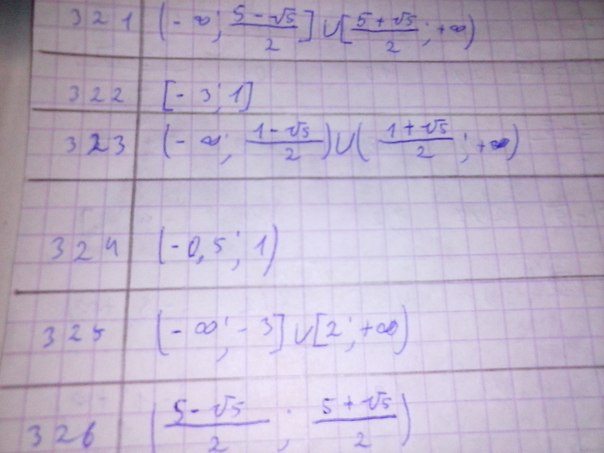 321 (-∞; (5-√5)/2] ∪ [(5+√5)/2; +∞)
322 [-3; 1]
323 (-∞; (1-√5)/2) ∪ ((1+√5)/2; +∞)
324 (-0,5; 1)
325 (-∞; -3] ∪ [2; +∞)
326 ((5-√5)/2; (5+√5)/2)